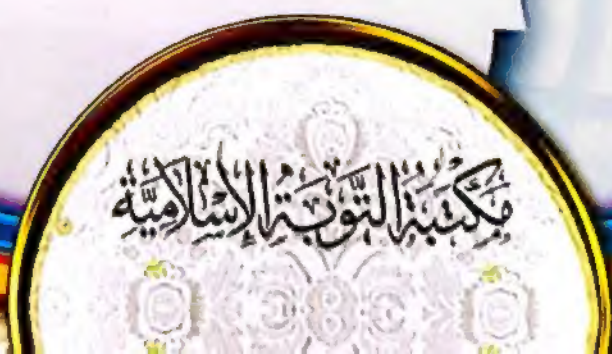 مَكْتَبَةُ التَّوْبَةِ الإِسْلَامِيَّةُ